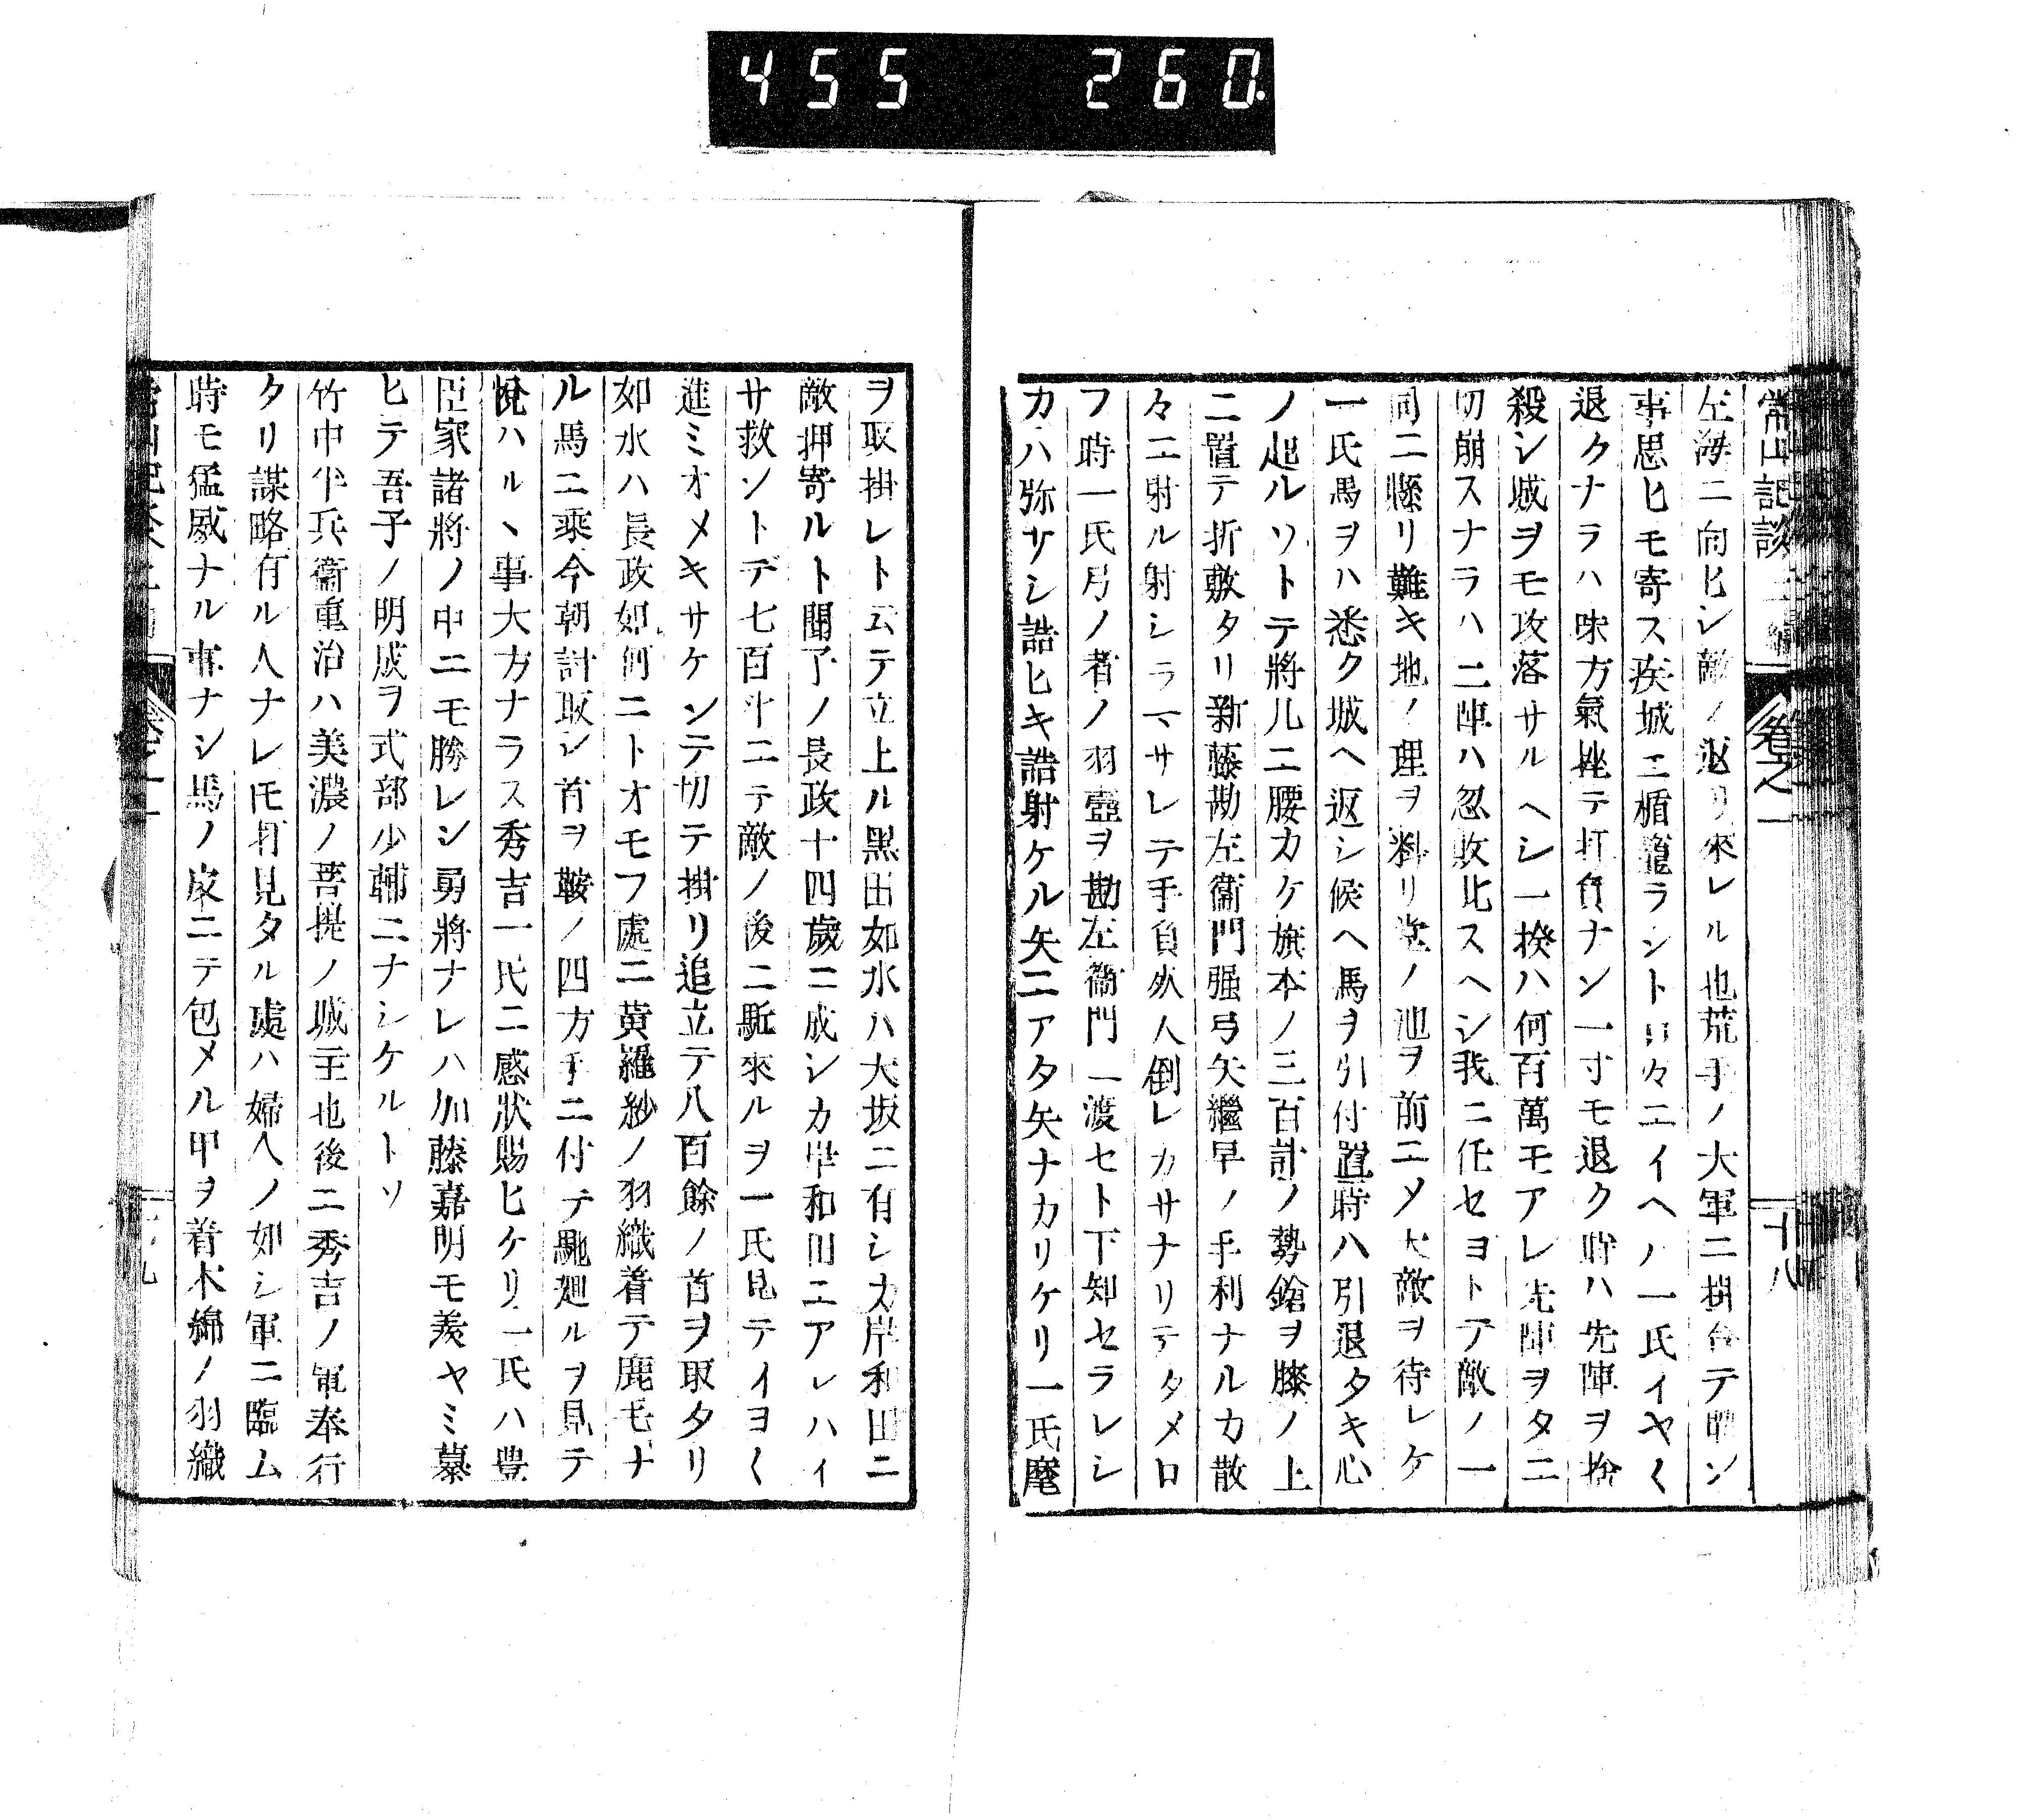 455 260.
常山記談 卷之一 十八
左海ニ向ヒシ敵ノ返リ來レル也荒手ノ大軍ニ掛合テ叶ン
事思ヒモ寄ス疾城ニ楯籠ラント口々ニイヘハ一氏イヤ〱
退クナラハ味方氣挫テ打負ナン一寸モ退ク時ハ先陣ヲ捨
殺シ城ヲモ攻落サルヘシ一揆ハ何百萬モアレ先陣ヲタニ
切崩スナラハ二陣ハ忽敗北スヘシ我ニ任セヨトテ敵ノ一
同ニ懸リ難キ地ノ理ヲ料リ堂ノ池ヲ前ニメ大敵ヲ待レケ
一氏馬ヲハ悉ク城ヘ返シ候ヘ馬ヲ引付置時ハ引退タキ心
ノ起ルソトテ將几ニ腰カケ旗本ノ三百計ノ勢鎗ヲ膝ノ上
ニ置テ折敷タリ新藤勘左衞門强弓矢繼早ノ手利ナルカ散
々ニ射ル射シラマサレテ手負死人倒レカサナリテタメロ
フ時一氏弓ノ者ノ羽壺ヲ勘左衞門ニ渡セト下知セラレシ
カハ弥サシ詰ヒキ詰射ケル矢ニアタ矢ナカリケリ一氏麾
ヲ取掛レト云テ立上ル黑田如水ハ大坂ニ有シカ岸和田ニ
敵押寄ルト聞了ノ長政十四歲ニ成シカ岸和田ニアレハイ
サ救ントテ七百斗ニテ敵ノ後ニ駈來ルヲ一氏見テイヨ〱
進ミオメキサケンテ切テ掛リ追立テ八百餘ノ首ヲ取タリ
如水ハ長政如何ニトオモフ處ニ黃羅紗ノ羽織着テ鹿毛ナ
ル馬ニ乘今朝討取シ首ヲ鞍ノ四方手ニ付テ馳廻ルヲ見テ
悅ハルヽ事大方ナラス秀吉一氏ニ感狀賜ヒケリ一氏ハ豊
臣家諸將ノ中ニモ勝レシ勇將ナレハ加藤嘉明モ羨ヤミ慕
ヒテ吾子ノ明成ヲ式部少輔ニナシケルトソ
竹中半兵衞重治ハ美濃ノ菩提ノ城主也後ニ秀吉ノ軍奉行
タリ謀略有ル人ナレ𪜈打見タル處ハ婦人ノ如シ軍ニ臨ム
時モ猛威ナル事ナシ馬ノ皮ニテ包メル甲ヲ着木綿ノ羽織